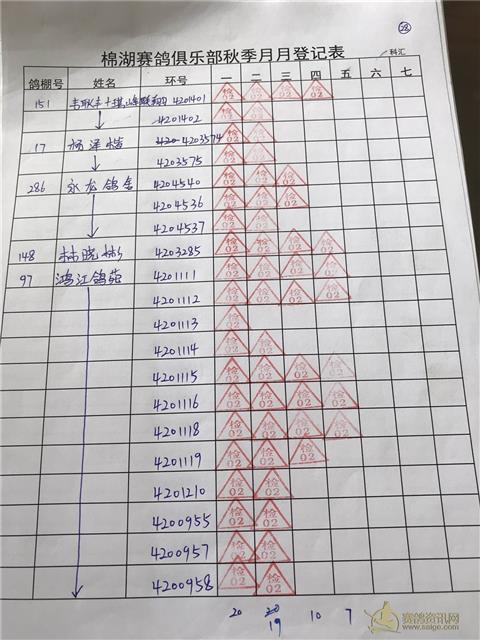 28
棉湖赛鸽俱乐部秋季月月登记表
科汇
鸽棚号 姓名 环号 一 二 三 四 五 六 七
151 4201401 检02 检02 检02 检02
4201402 检02 检02
17 杨泽楷 4203574 检02 检02
4203575 检02 检02
286 永龙鸽舍 4204540 检02 检02 检02
4204536 检02 检02 检02
4204537 检02 检02
148 林晓彬 4203285 检02 检02 检02 检02
97 鸿江鸽苑 4201111 检02 检02 检02 检02
4201112 检02 检02 检02 检02
4201113 检02
4201114 检02 检02
4201115 检02 检02 检02 检02
4201116 检02 检02 检02 检02
4201118 检02 检02 检02 检02
4201119 检02 检02 检02
4201210 检02 检02
4200955 检02 检02
4200957 检02 检02
4200958 检02 检02
20 19 10 7
赛鸽资讯网
www.saige.com